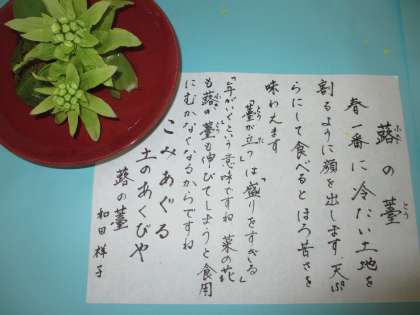 蕗の薹
ふき とう
春一番に冷たい土地を
割るように顔を出します 天ぷ
らにして食べるとほろ苦さを
味わえます
「薹が立つ」は「盛りをすぎる」
とう た
「年がいく」という意味ですね 菜の花
も蕗の薹も伸びてしまうと食用
ふき とう
にむかなくなるからですね
こみあぐる
土のあくびや
蕗の薹
和田 祥子